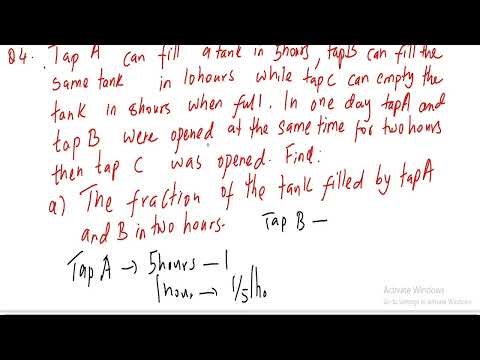 Q4. Tap A can fill a tank in 5hours, tap B can fill the
same tank in 10hours while tap C can empty the
tank in 8hours when full. In one day tap A and
tap B were opened at the same time for two hours
then tap C was opened. Find:
a) The fraction of the tank filled by tap A
and B in two hours. Tap B —
Tap A → 5hours — 1
1hour → 1/5 1ho
Activate Windows
Go to Settings to activate Windows.